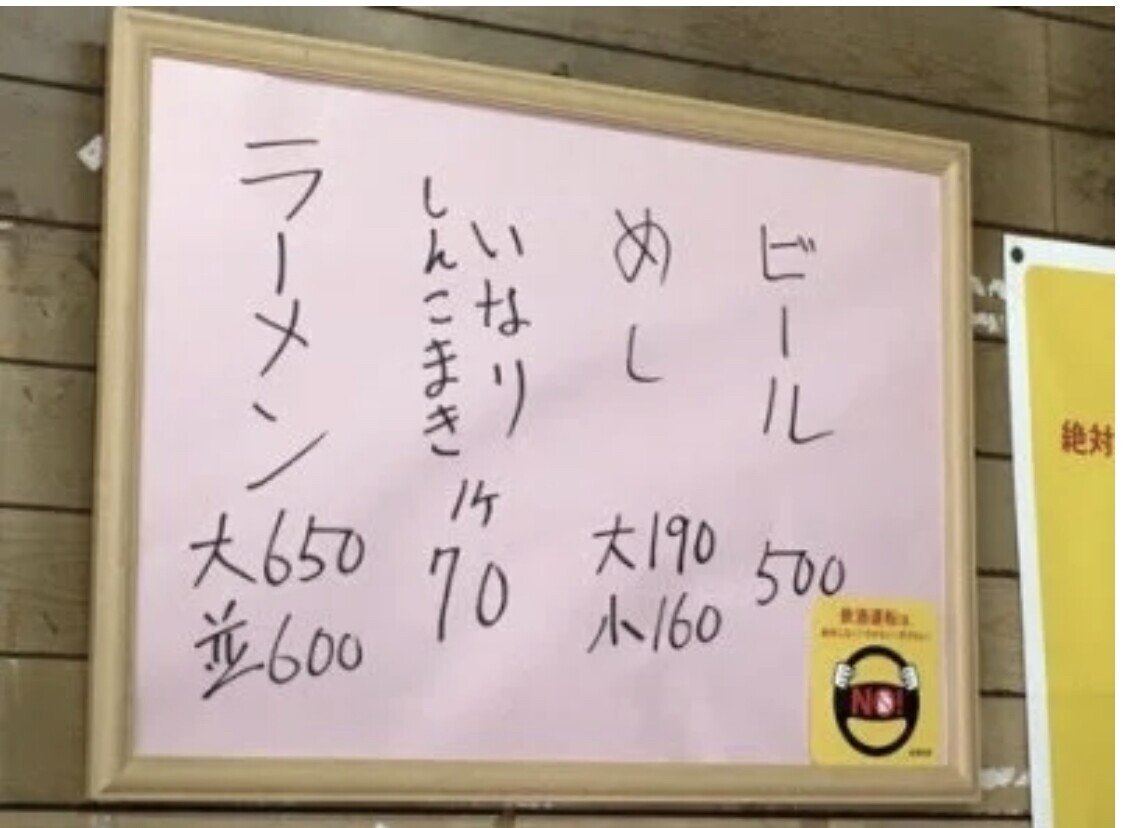 ビール 500
めし 大190
小160
いなり
しんこまき 1ケ 70
ラーメン 大650
並600
飲酒運転は
NO!
絶対